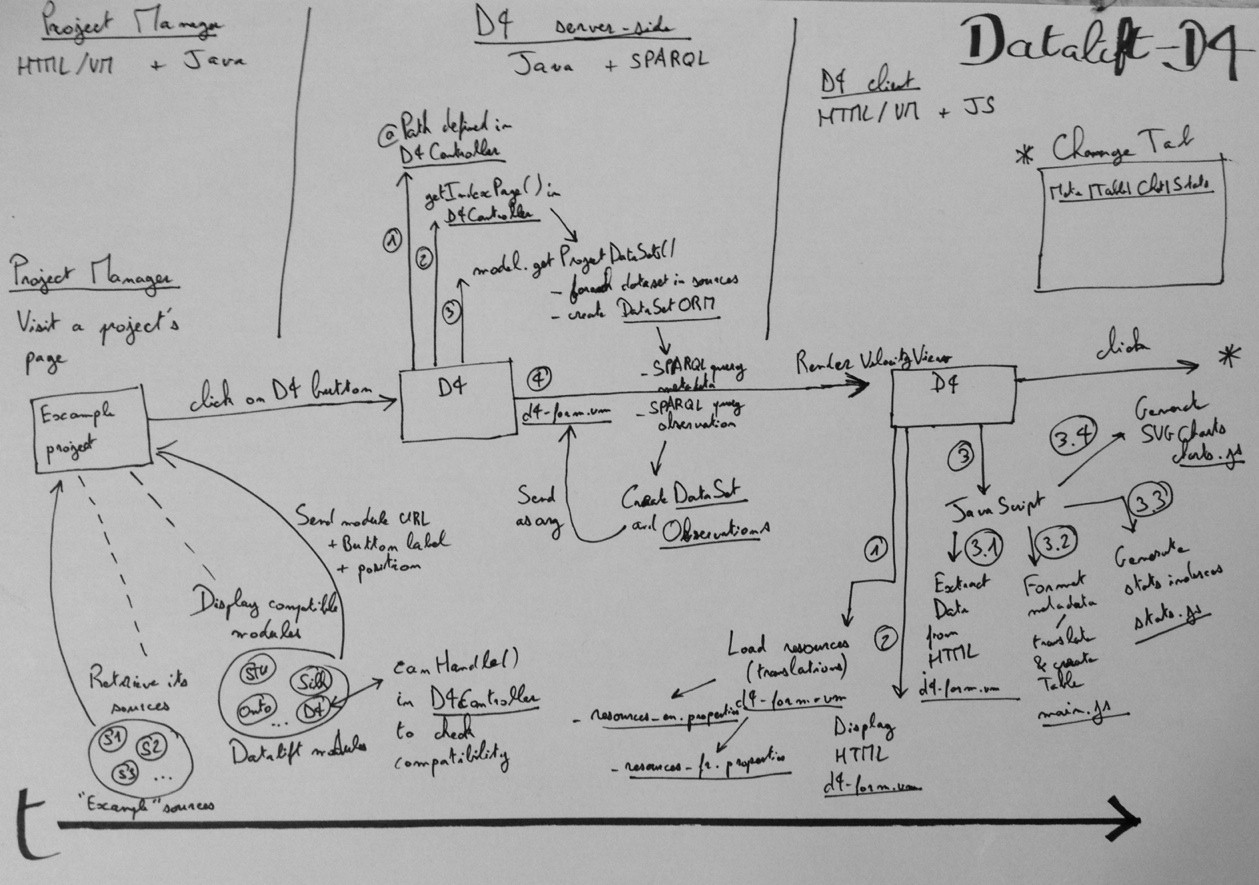 Project Manager
HTML/VM + Java
D4 server-side
Java + SPARQL
Datalift-D4
D4 client
HTML/VM + JS
* Change Tab
Meta|Table|Chst|Stats
@Path defined in
D4Controller
1
getIndexPage() in
D4Controller
2
model.getProjectDataSets()
- foreach dataset in sources
- create DataSetORM
3
Project Manager
Visit a project's
page
Example
project
click on D4 button
D4
4
d4-form.vm
- SPARQL query
metadata
- SPARQL query
observation
Create DataSet
and Observations
Send
as arg
Render VelocityView
D4
click
*
Send module URL
+ Button label
+ position
Display compatible
modules
Retrieve its
sources
S1 S2
S3 ...
"Example" sources
STU Silk
Onto ... D4
Datalift modules
canHandle()
in D4Controller
to check
compatibility
1
Load resources
(translations)
d4-form.vm
- resources-en.properties
- resources-fr.properties
2
Display
HTML
d4-form.vm
3
JavaScript
3.1
Extract
Data
from
HTML
d4-form.vm
3.2
Format
metadata
/
translate
& create
Table
main.js
3.3
Generate
stats indexes
stats.js
3.4
Generate
SVG Charts
charts.js
t